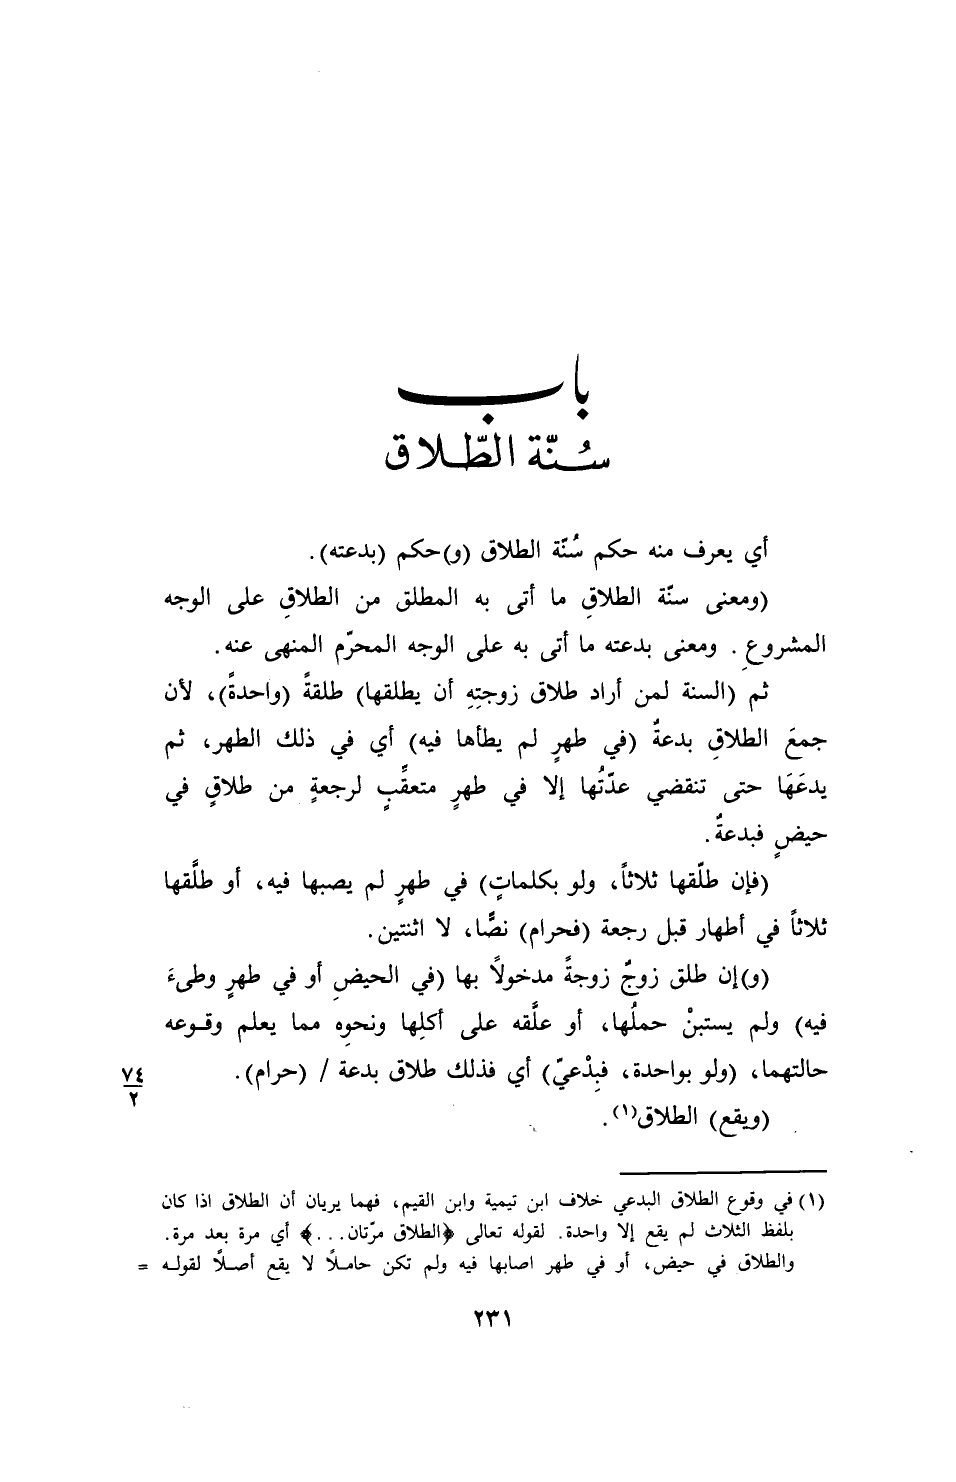 باب
سُنّة الطّلاق
أي يعرف منه حكم سُنّة الطلاق (و)حكم (بدعته).
(ومعنى سنّة الطلاقِ ما أتى به المطلق من الطلاقِ على الوجه
المشروعِ. ومعنى بدعته ما أتى به على الوجه المحرّم المنهى عنه.
ثم (السنة لمن أراد طلاق زوجتِهِ أن يطلقها) طلقةً (واحدةً)، لأن
جمعَ الطلاقِ بدعةٌ (في طهرٍ لم يطأها فيه) أي في ذلك الطهر، ثم
يدعَهَا حتى تنقضي عدّتُها إلا في طهرٍ متعقِّبٍ لرجعةٍ من طلاقٍ في
حيضٍ فبدعةٌ.
(فإن طلّقها ثلاثاً، ولو بكلماتٍ) في طهرٍ لم يصبها فيه، أو طلَّقها
ثلاثاً في أطهار قبل رجعة (فحرام) نصًّا، لا اثنتين.
(و)إن طلق زوجٌ زوجةً مدخولاً بها (في الحيضِ أو في طهرٍ وطىءَ
فيه) ولم يستبنْ حملُها، أو علَّقه على أكلِها ونحوِه مما يعلم وقوعه
حالتهما، (ولو بواحدة، فبِدْعيّ) أي فذلك طلاق بدعة / (حرام).
٧٤
٢
(ويقع) الطلاق(١).
(١) في وقوع الطلاق البدعي خلاف ابن تيمية وابن القيم، فهما يريان أن الطلاق اذا كان
بلفظ الثلاث لم يقع إلا واحدة. لقوله تعالى ﴿الطلاق مرّتان...﴾ أي مرة بعد مرة.
والطلاق في حيض، أو في طهر اصابها فيه ولم تكن حاملاً لا يقع أصلاً لقوله =
٢٣١